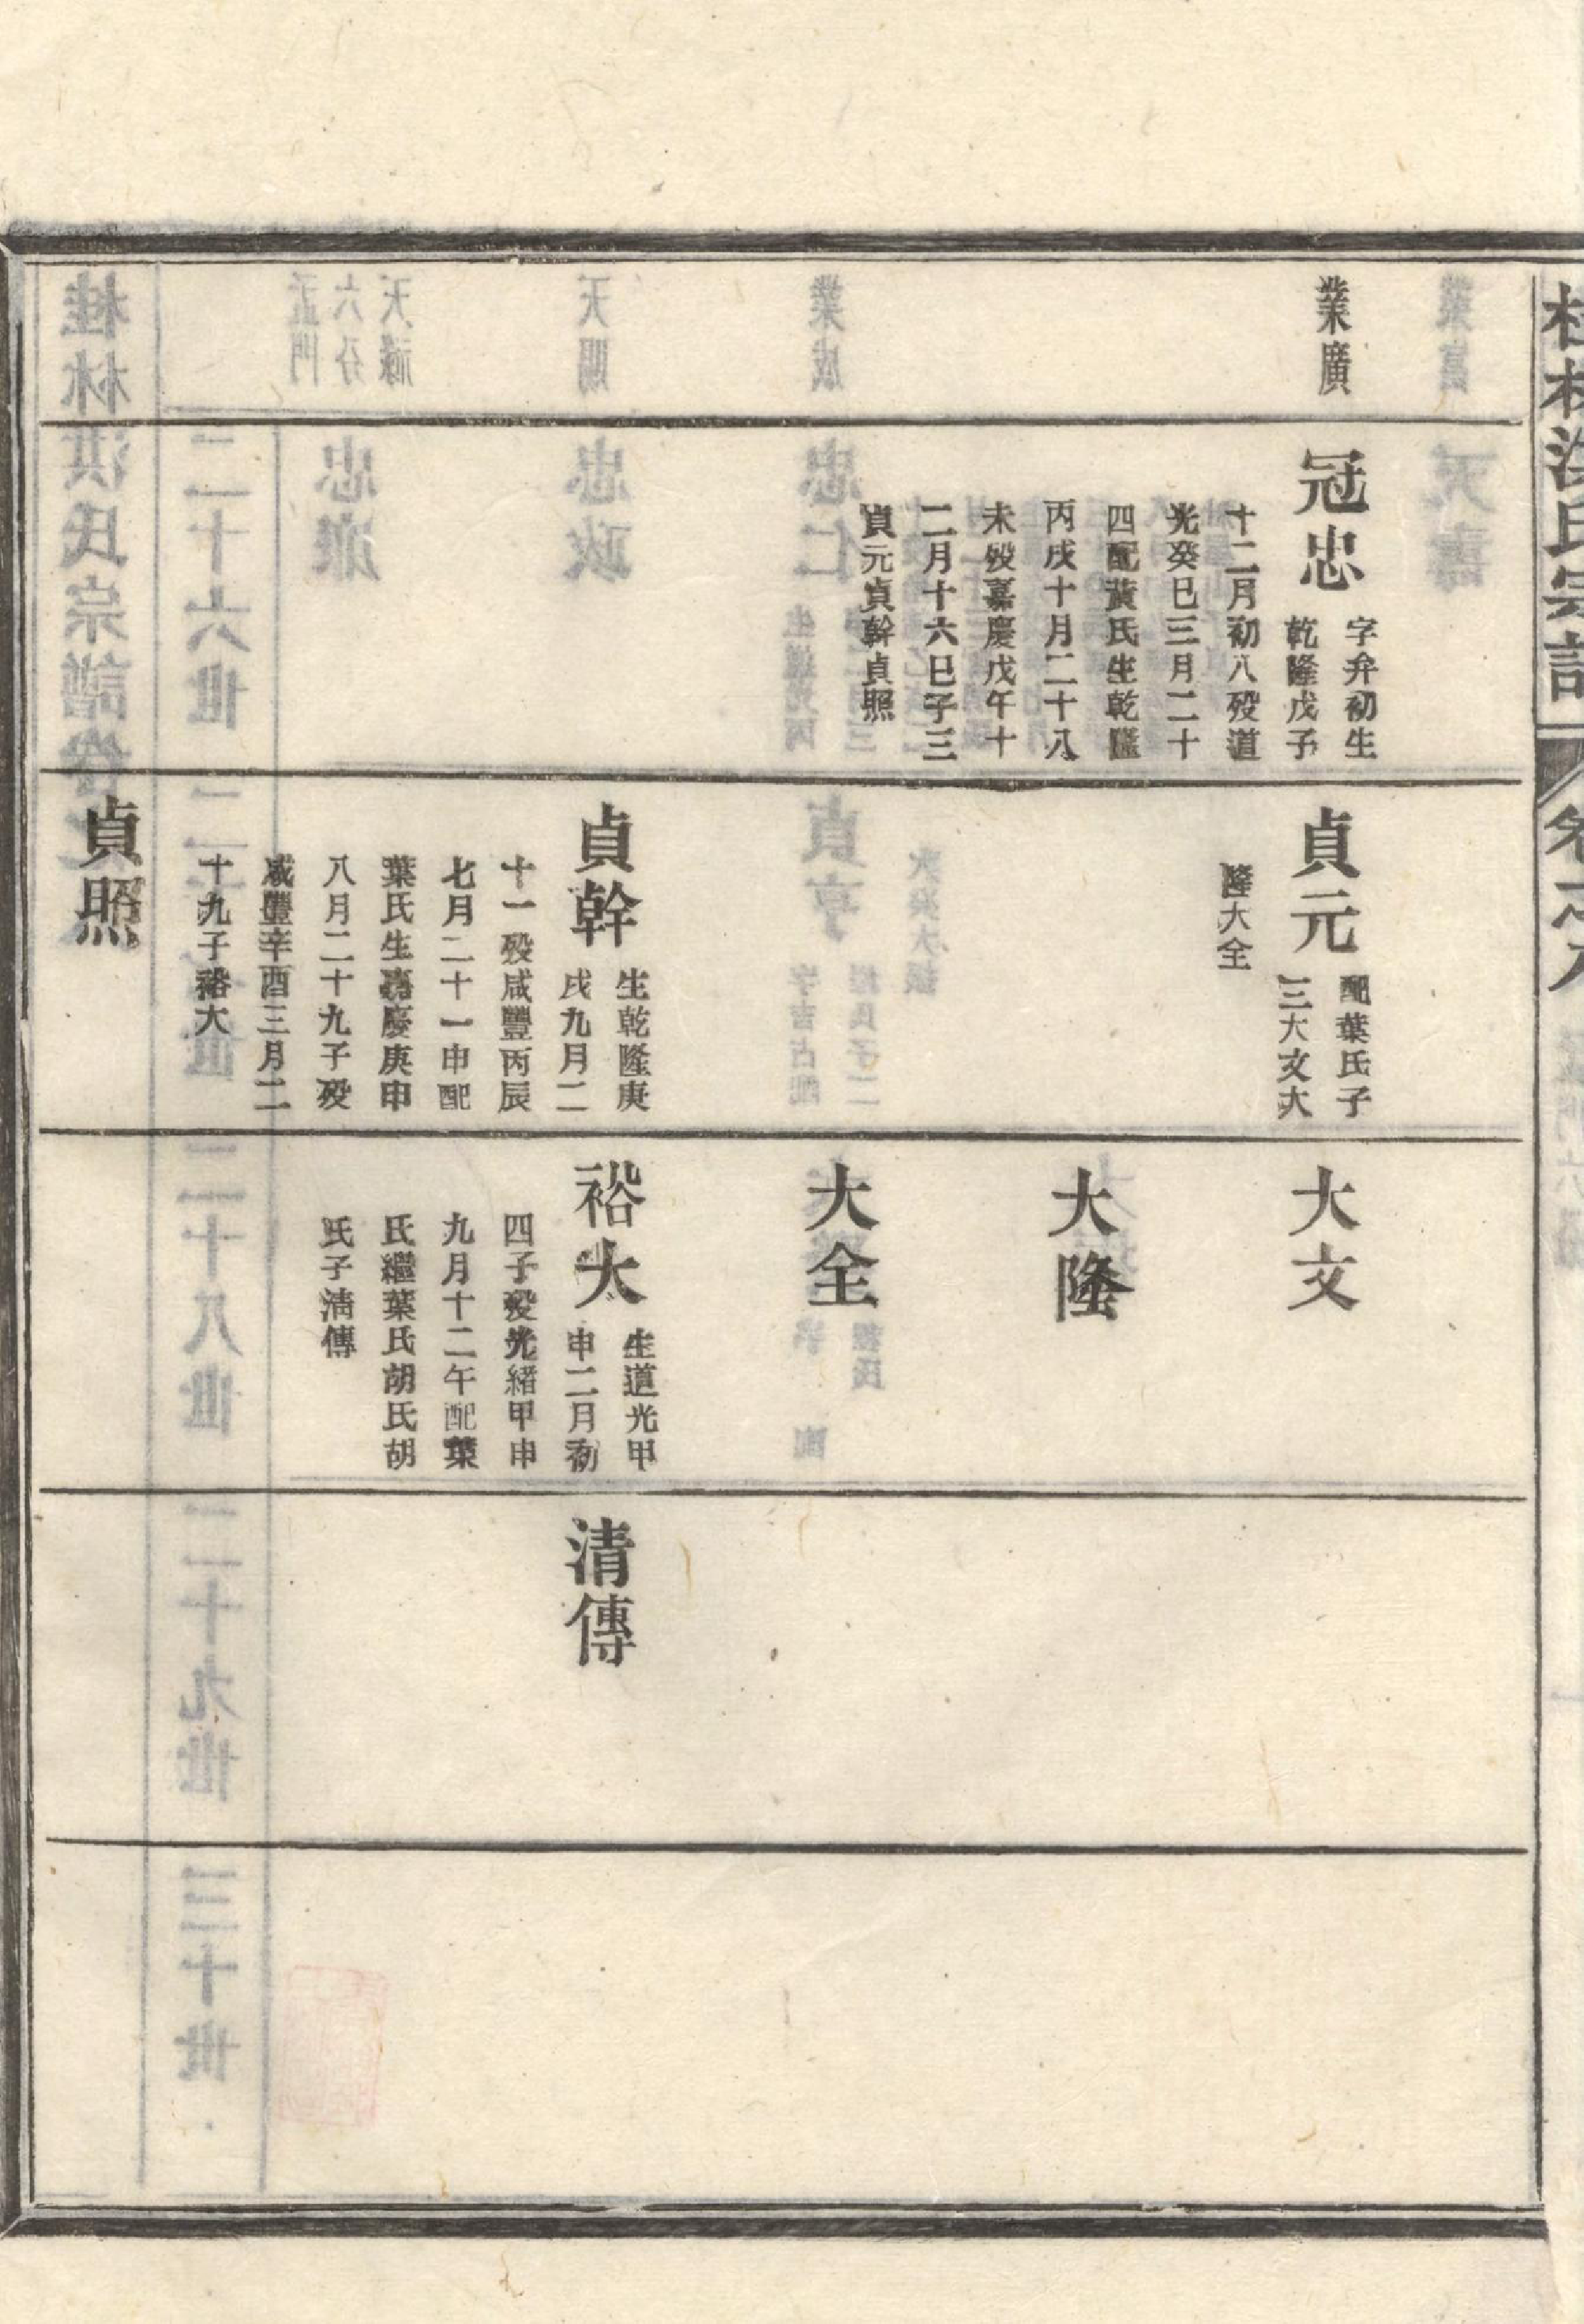 桂林洪氏宗譜
卷之八
業廣
冠忠
字弁初生
乾隆戊子
十二月初八殁道
光癸巳三月二十
四配黃氏生乾隆
丙戌十月二十八
未殁嘉慶戊午十
二月十六巳子三
貞元貞幹貞照
貞元
配葉氏子
三大文大
隆大全
貞幹
生乾隆庚
戌九月二
十一殁咸豐丙辰
七月二十一申配
葉氏生嘉慶庚申
八月二十九子殁
咸豐辛酉三月二
十九子裕大
貞照
大文
大隆
大全
裕大
生道光甲
申二月初
四子殁光緒甲申
九月十二午配葉
氏繼葉氏胡氏胡
氏子清傳
清傳